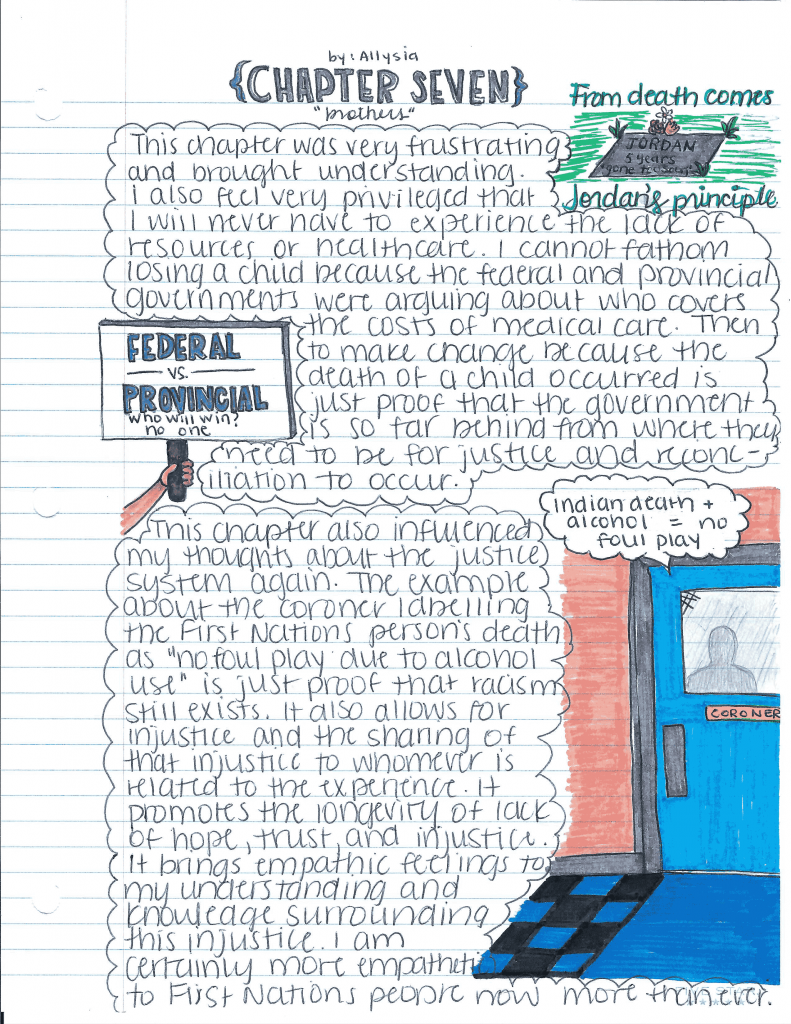 by: Allysia
{CHAPTER SEVEN}
"brothers"
From death comes
JORDAN
5 years
"gone too soon"
Jordan's principle
This chapter was very frustrating
and brought understanding.
i also feel very privileged that
I will never have to experience the lack of
resources or healthcare. I cannot fathom
losing a child because the federal and provincial
governments were arguing about who covers
the costs of medical care. Then
to make change because the
death of a child occurred is
just proof that the government
is so far behind from where they
need to be for justice and reconc-
iliation to occur.
FEDERAL
VS.
PROVINCIAL
who will win?
no one
Indian death +
alcohol = no
foul play
CORONER
This chapter also influenced
my thoughts about the justice
system again. The example
about the coroner labelling
the First Nations person's death
as "no foul play due to alcohol
use" is just proof that racism
still exists. It also allows for
injustice and the sharing of
that injustice to whomever is
related to the experience. It
promotes the longevity of lack
of hope, trust, and injustice.
It brings empathic feelings to
my understanding and
knowledge surrounding
this injustice. I am
certainly more empathetic
to First Nations people now more than ever.